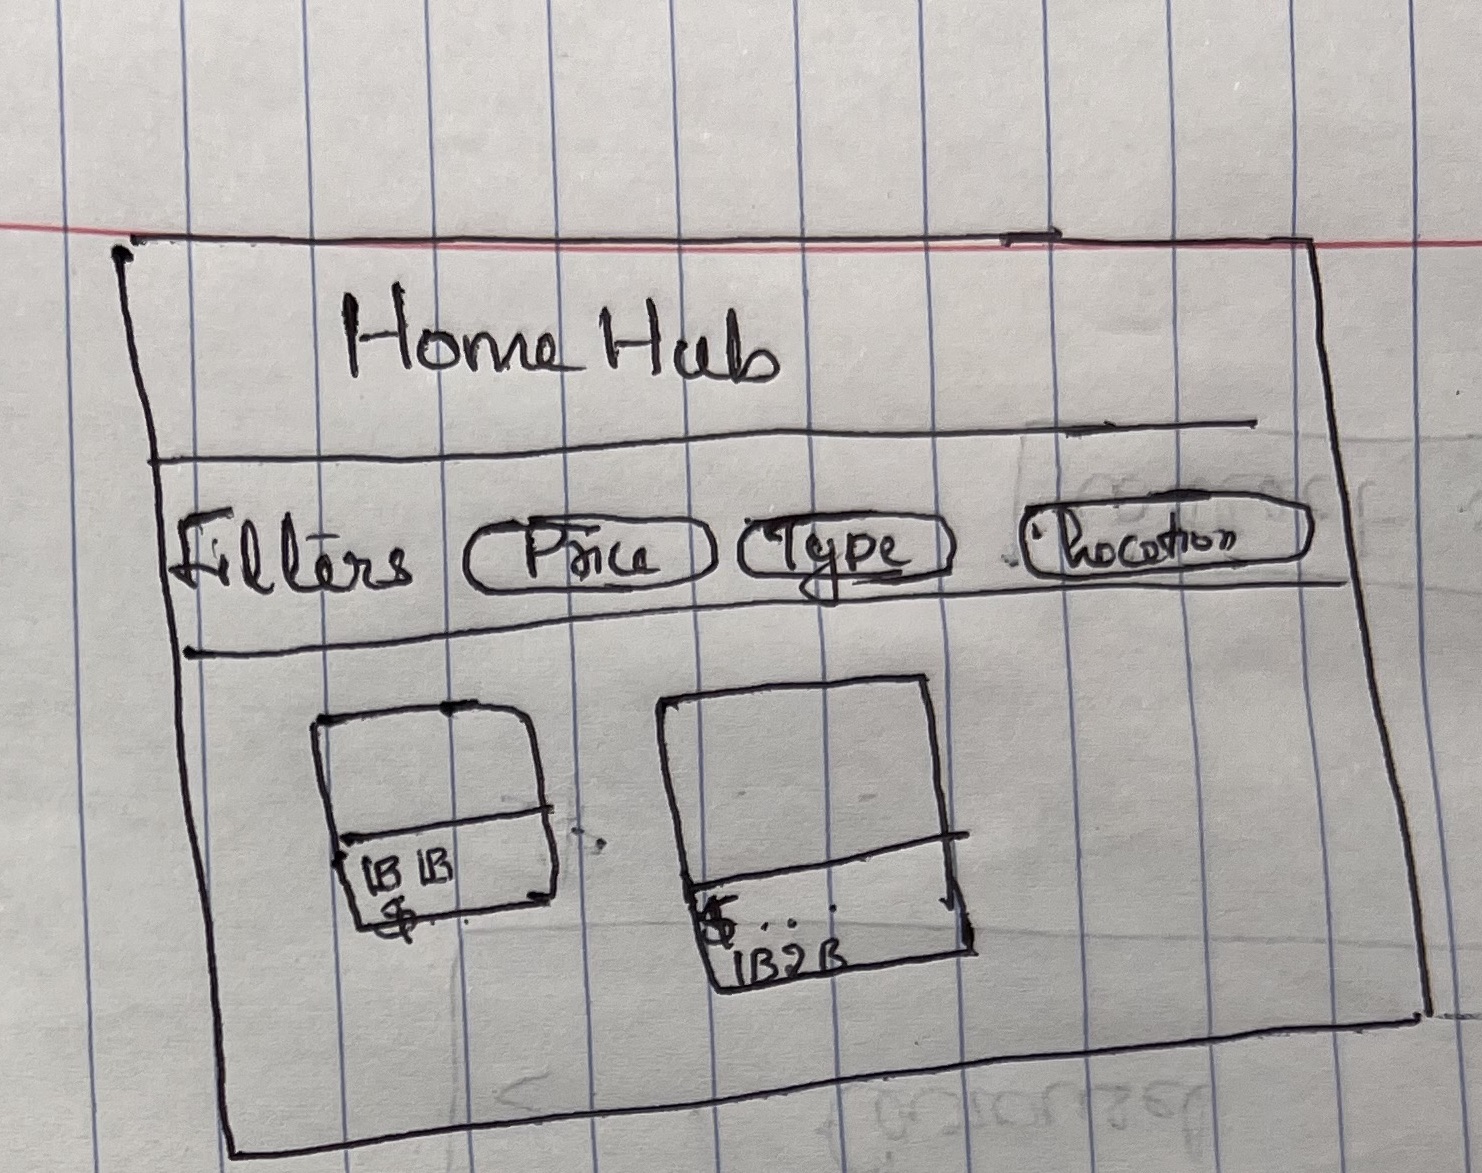 Home Hub
Filters Price Type Location
1B 1B
$ . .
$ . . .
1B2B